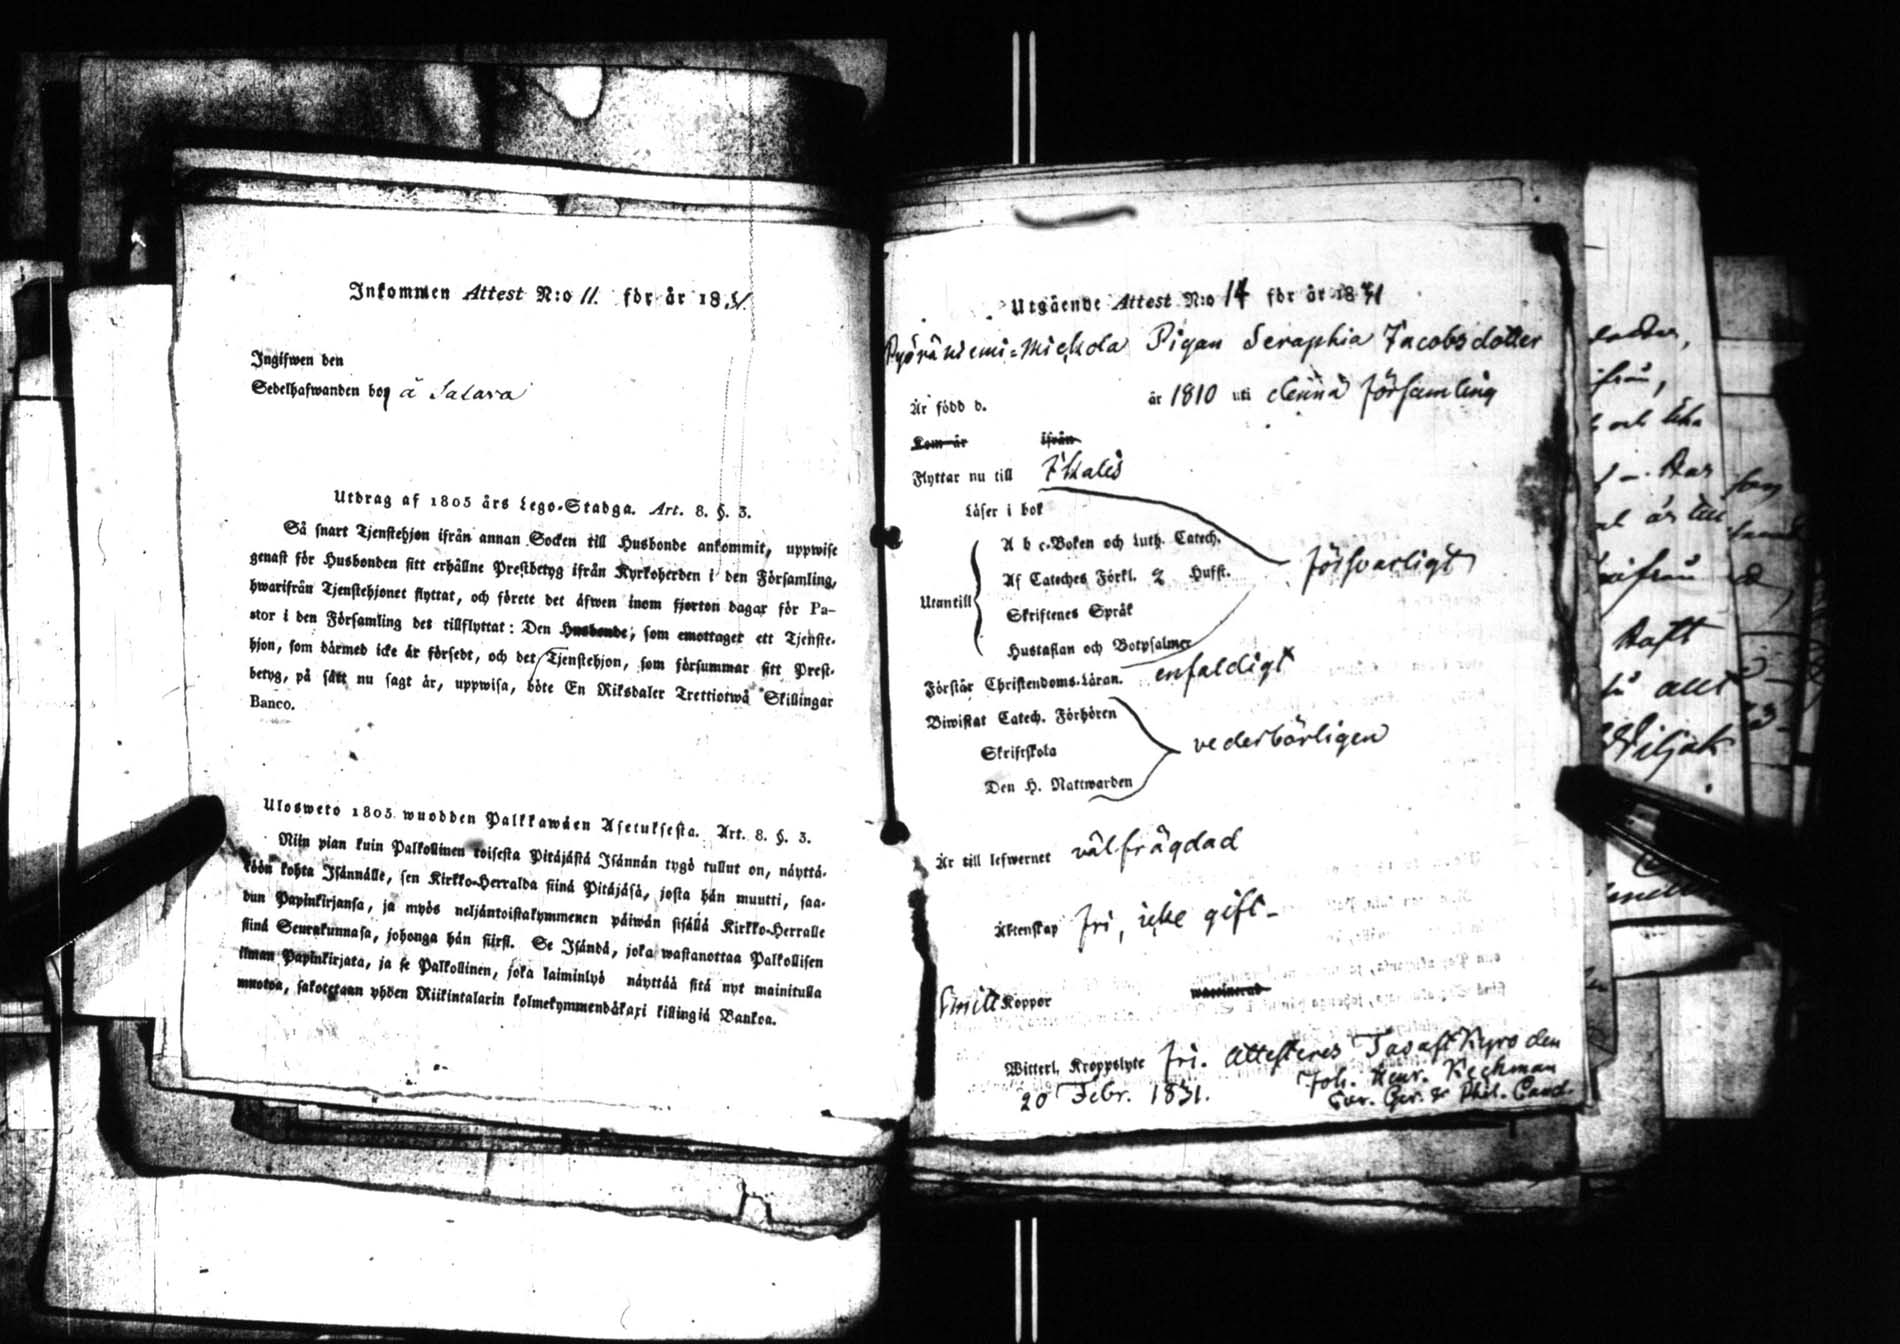 Inkommen Attest N:o 11. för år 1831.
Ingifwen den
Sedelhafwanden boy å Salara
Utdrag af 1805 års Lego-Stadga. Art. 8. §. 3.
Så snart Tjenstehjon ifrån annan Socken till Husbonde ankommit, uppwise
genast för Husbonden sitt erhållne Prestbetyg ifrån Kyrkoherden i den Församling,
hwarifrån Tjenstehjonet flyttat, och förete det äfwen inom fjorton dagar för Pa-
stor i den Församling det tillflyttat: Den Husbonde, som emottager ett Tjenste-
hjon, som därmed icke är försedt, och det Tjenstehjon, som försummar sitt Prest-
betyg, på sätt nu sagt är, uppwisa, böte En Riksdaler Trettiotwå Skillingar
Banco.
Ulosweto 1805 wuodden Palkkawäen Asetuksesta. Art. 8. §. 3.
Niin pian kuin Palkollinen toisesta Pitäjästä Isännän tygö tullut on, näyttä-
köön kohta Isännälle, sen Kirkko-Herralda siinä Pitäjäsä, josta hän muutti, saa-
dun Papinkirjansa, ja myös neljäntoistakymmenen päiwän sisällä Kirkko-Herralle
siinä Seurakunnasa, johonga hän siirsi. Se Isändä, joka wastanottaa Palkollisen
ilman Papinkirjata, ja se Palkollinen, joka laiminlyö näyttää sitä nyt mainitulla
muotoa, sakotetaan yhden Riikintalarin kolmekymmendäkaxi killingiä Bankoa.
Utgående Attest N:o 14 för år 1831
Pyöräniemi-Mickola Pigan Seraphia Jacobsdotter
Är född d. år 1810 uti denna församling
Kom år ifrån
Flyttar nu till Ikalis
Läser i bok
A b c-Boken och Luth. Catech.
Af Cateches Förkl. 2 Hufst.
försvarligt
Utantill
Skriftenes Språk
Hustaflan och Botpsalmer
Förstår Christendoms-Läran. enfaldigt
Biwistat Catech. Förhören
Skriftskola
vederbörligen
Den H. Nattwarden
Är till lefwernet välfrägdad
Äktenskap fri, icke gift-
Koppor waccinerad
Witterl. Kroppslyte fri. Attesteres Tavastkyro den
20 Febr. 1831. Joh. Henr. Keckman
Cur. Ger. & Phil. Cand.